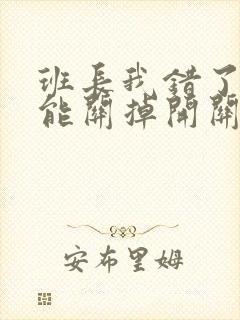 班長我錯了
能關掉開關
安布里姆